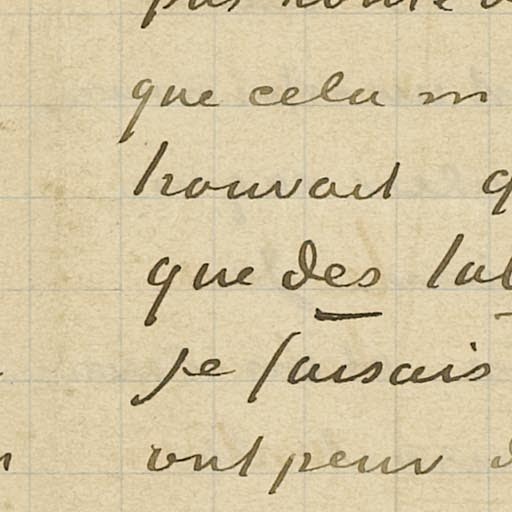 que cela m
trouvait
que des
je faisais
ont peur